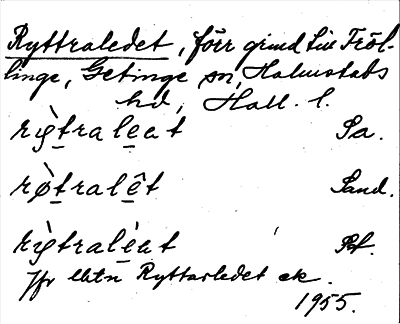 Ryttraledet, förr grind till Fröl-
linge, Getinge sn, Halmstads
hd, Hall. l.
rỳtraleat Sa.
rø̀tralêt Sand.
rỳtraléat Rf.
Jfr Ryttarledet ek.
1955.